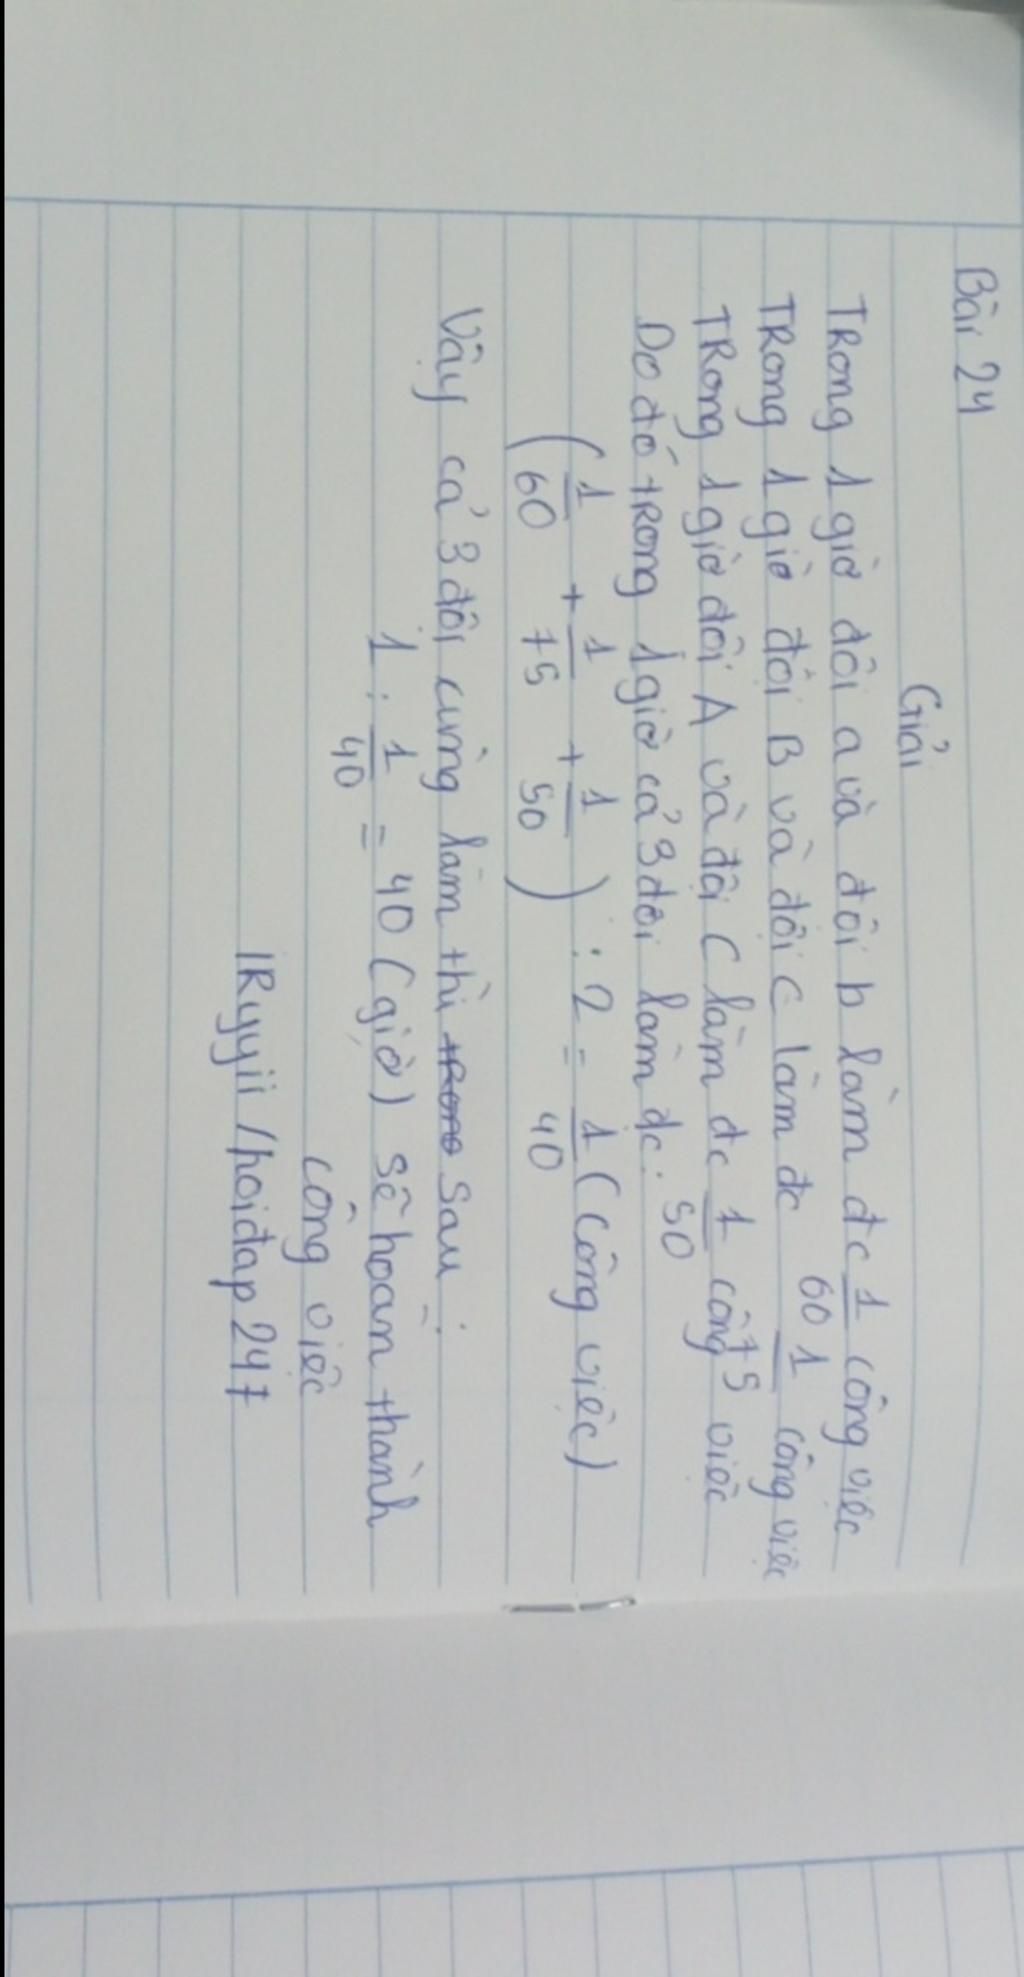 Bài 24
Giải
TRong 1 giờ đội a và đội b làm đc 1/60 công việc
TRong 1 giờ đội B và đội C làm đc 1/75 công việc
TRong 1 giờ đội A và đội C làm đc 1/50 công việc
Do đó tRong 1 giờ cả 3 đội làm đc:
(1/60 + 1/75 + 1/50) : 2 = 1/40 (công việc)
Vậy cả 3 đội cùng làm thì sau:
1 : 1/40 = 40 (giờ) sẽ hoàn thành
công việc
IRyyii /hoidap247